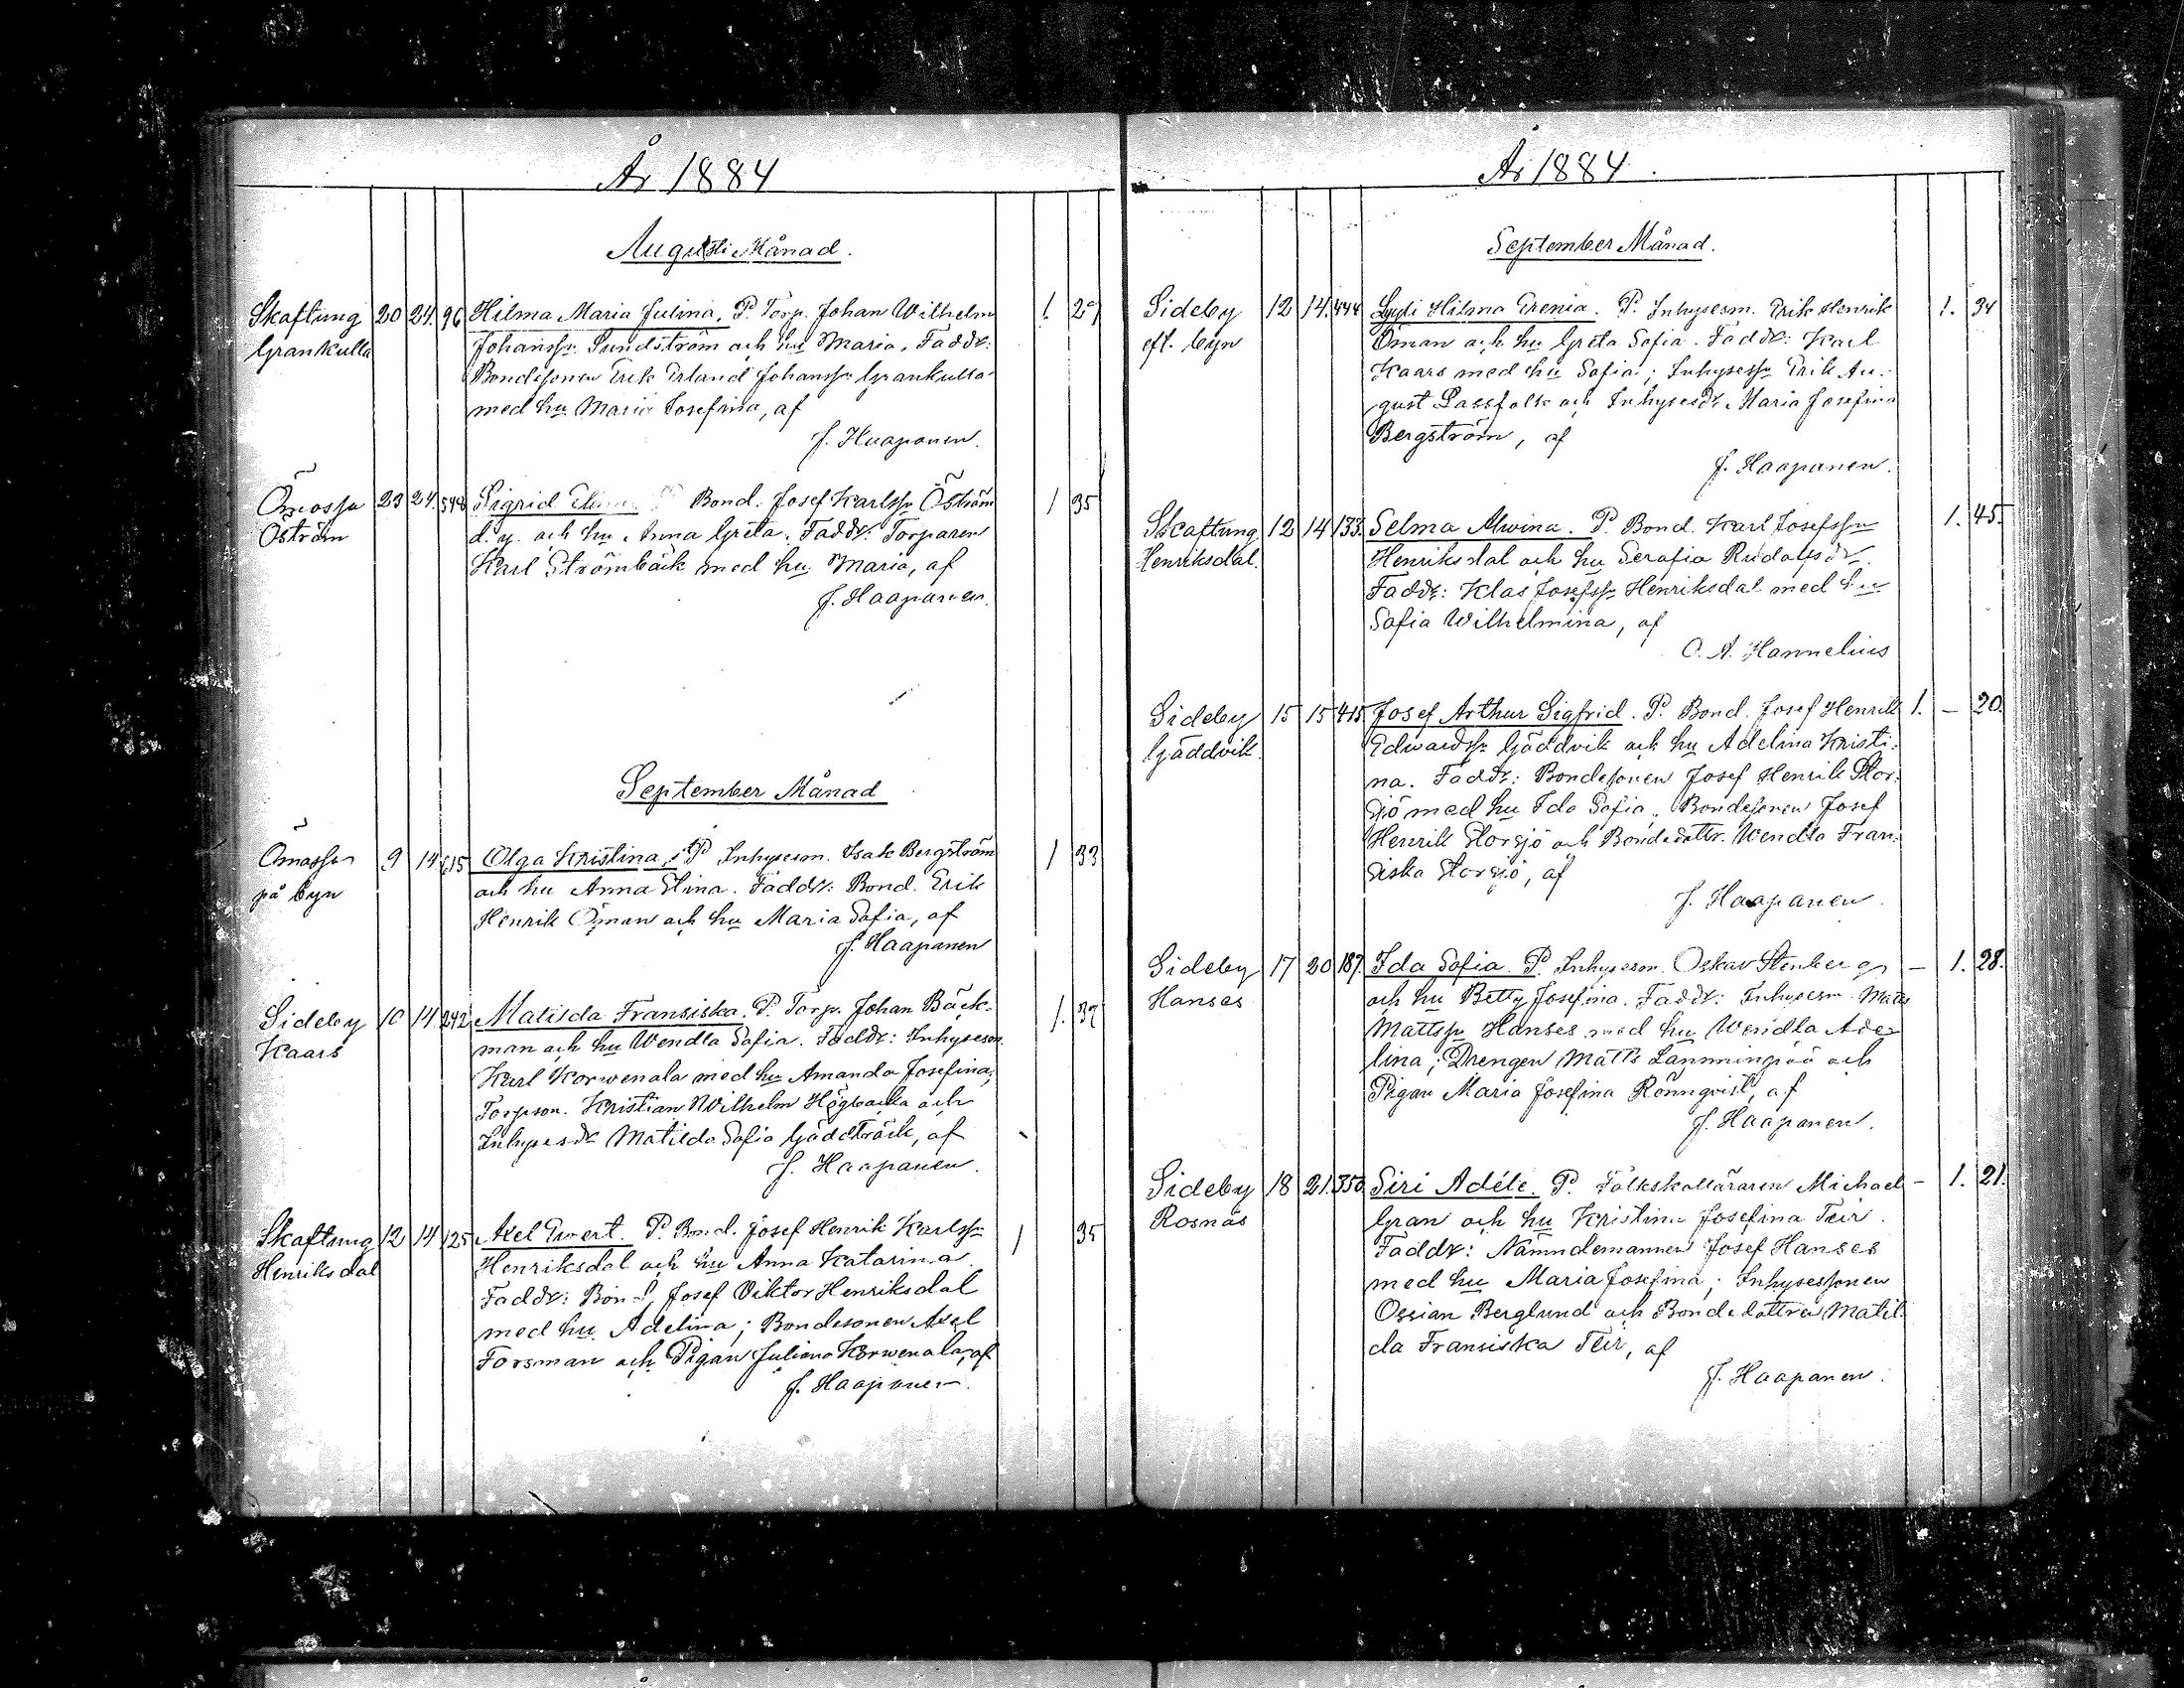 År 1884
Augusti Månad.
Skaftung 20 24. 96 Hilma Maria Julina, P. Torp. Johan Wilhelm 1. 29
Grankulla Johanss. Sundström och hu Maria. Faddr:
Bondesonen Erik Erland Johanss. Grankulla
med hu Maria Josefina, af
J. Haapanen.
Ömossa 23 24. Sigrid Bond. Josef Karlss. Öström 1 35
Öström d. y. och hu Anna Greta. Faddr: Torparen
Karl Strömbäck med hu Maria, af
J. Haapanen.
September Månad
Ömossa 9 14 Olga Kristina, P Inhysesm. Isak Bergström 1 33
på byn och hu Anna Elina. Faddr: Bond. Erik
Henrik Öman och hu Maria Sofia, af
J. Haapanen
Sideby 10 14 242 Matilda Fransiska. P. Torp. Johan Bäck- 1.
Kaars man och hu Wendla Sofia. Faddr: Inhyseson
Karl Korwenala med hu Amanda Josefina;
Torpson. Kristian Wilhelm Högbacka och
Inhysesdr Matilda Sofia Gäddträsk, af
J. Haapanen.
Skaftung 12 14 125 Axel Ewert. P. Bond. Josef Henrik Karlss. 1 35
Henriksdal Henriksdal och hu Anna Katarina
Faddr: Bond. Josef Viktor Henriksdal
med hu Adelina; Bondesonen Axel
Forsman och Pigan Juliana Korwenala, af
J. Haapanen.
År 1884.
September Månad.
Sideby 12 14. 444 Lyli Hilma Erenia. P. Inhysesm. Erik Henrik 1. 34
efl. byn Öman och hu Greta Sofia. Faddr: Karl
Kaars med hu Sofia; Inhysess. Erik Au-
gust Lassfolk och Inhysesdr. Maria Josefina
Bergström, af
J. Haapanen.
Skaftung 12 14 133. Selma Alwina. P. Bond. Karl Josefss. 1. 45.
Henriksdal. Henriksdal och hu Serafia Rudolfsdr.
Faddr: Klas Josefss. Henriksdal med hu
Sofia Wilhelmina, af
C. A. Hannelius
Sideby 15 15 415 Josef Arthur Sigfrid. P. Bond. Josef Henrik 1. – 20.
Gäddvik. Edwardss. Gäddvik och hu Adelina Kristi-
na. Faddr: Bondesonen Josef Henrik Stor-
sjö med hu Ida Sofia, Bondesonen Josef
Henrik Storsjö och Bondedottr. Wendla Fran-
siska Storsjö, af
J. Haapanen.
Sideby 17 20 187. Ida Sofia. P. Inhysesm. Oskar Stenberg – 1. 28.
Hanses och hu Betty Josefina. Faddr: Inhysesm Matts
Mattss. Hanses med hu Wendla Ade-
lina; Drengen Matts Lämmingpää och
Pigan Maria Josefina Rönnqvist, af
J. Haapanen.
Sideby 18 21. 350 Siri Adéle. P. Folkskolläraren Michael – 1. 21.
Rosnäs Gran och hu Kristina Josefina Teir.
Faddr: Nämndemannen Josef Hanses
med hu Maria Josefina; Inhysessonen
Ossian Berglund och Bondedottren Matil-
da Fransiska Teir, af
J. Haapanen.